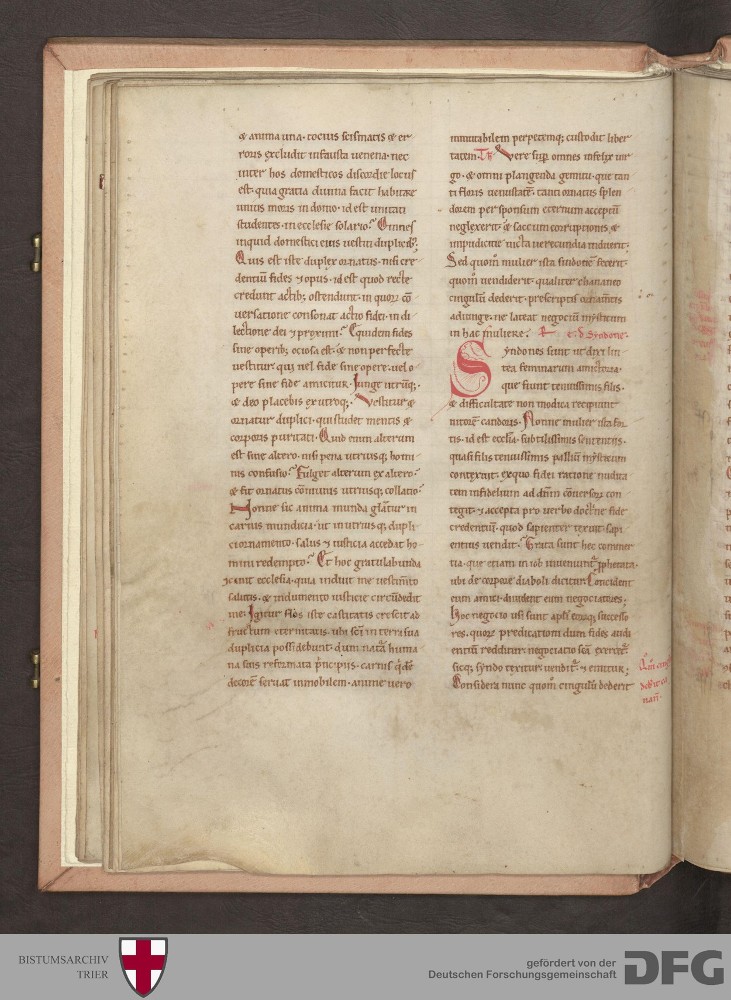 & anima una. tocius scismatis & er
roris excludit infausta uenena. nec
inter hos domesticos discordie locus
est. quia gratia diuina facit habitare
unius moris in domo. id est unitati
studentes. in ecclesie solario. Omnes
inquid domestici eius uestiti
Quis est iste duplex ornatus. nisi cre
dentiū fides & opus. id est quod recte
credunt actib; ostendunt. in quoꝝ cō
uersatione consonat actio fidei. in di
lectione dei & proximi. Equidem fides
sine operib; ociosa est. & non perfecte
uestitur quis uel fide sine opere. uel o
pere sine fide amicitur. Iunge utrūq;.
& deo placebis ex utroq;. Vestitur &
ornatur duplici. qui studet mentis &
corporis puritati. Quid enim alterum
est sine altero. nisi pena utriusq; homi
nis confusio. Fulget alterum ex altero.
& fit ornatus cōmunis utriusq; collatio.
Nonne sic anima munda glāt̄ur in
carnis mundicia. ut in utrisq; dupli
ci ornamento. salus & iusticia accedat ho
mini redempto. Et hoc gratulabunda
canit ecclesia. quia induit me uestim̄to
salutis. & indumento iusticie circūdedit
me. Igitur flos iste castitatis crescit ad
fructum eternitatis. ubi sc̄i in terra sua
duplicia possidebunt. dum natā huma
na suis reformata carnis
decorē seruat inmobilem. anime uero
inmutabilem perpetemq; custodit liber
tatem. Vere sup̄ omnes infelix uir
go. & omni plangenda gemitu. que tan
ti floris uenustatē. tanti ornatus splen
dorem per sponsum eternum acceptū
neglexerit. & saccum corruptionis &
impudicitie uicta uerecundia induerit.
Sed quom̄ mulier ista sindonē fecerit.
quom̄ uendiderit. qualiter chananeo
cingulū dederit. prescriptis ornam̄tis
adiunge. ne lateat negociū mysticum
in hac muliere. d̄ Syndone.
Syndones sunt ut dixi lin
tea feminarum amictoria.
que fiunt tenuissimis filis.
& difficultate non modica recipiunt
nitorē candoris. Nonne mulier ista for
tis. id est ecclīa. subtilissimis sententiis.
quasi filis tenuissimis pallium mysticum
contexuit. ex quo fidei ratione nudita
tem infidelium ad dn̄m cōuersoꝝ con
tegit. & accepta pro uerbo doct̄ne fide
credentiū. quod sapienter texuit. sapi
entius uendit. Grata sunt hec commer
tia. que etiam in iob inueniunt̄ pphetata.
ubi de corpore diaboli dicitur. Concident
eum amici. diuident eum negociatores.
Hoc negocio usi sunt apl̄i eorūq; successo
res. quoꝝ predicationi dum fides audi
entiū redditur. negociatio sc̄a exercet̄.
sicq; syndo texitur. uendit̄. & emitur.
Considera nunc quom̄ cingulū dederit
Qm̄ cing
dedit ca
nan̄.
BISTUMSARCHIV
TRIER
gefördert von der
Deutschen Forschungsgemeinschaft
DFG